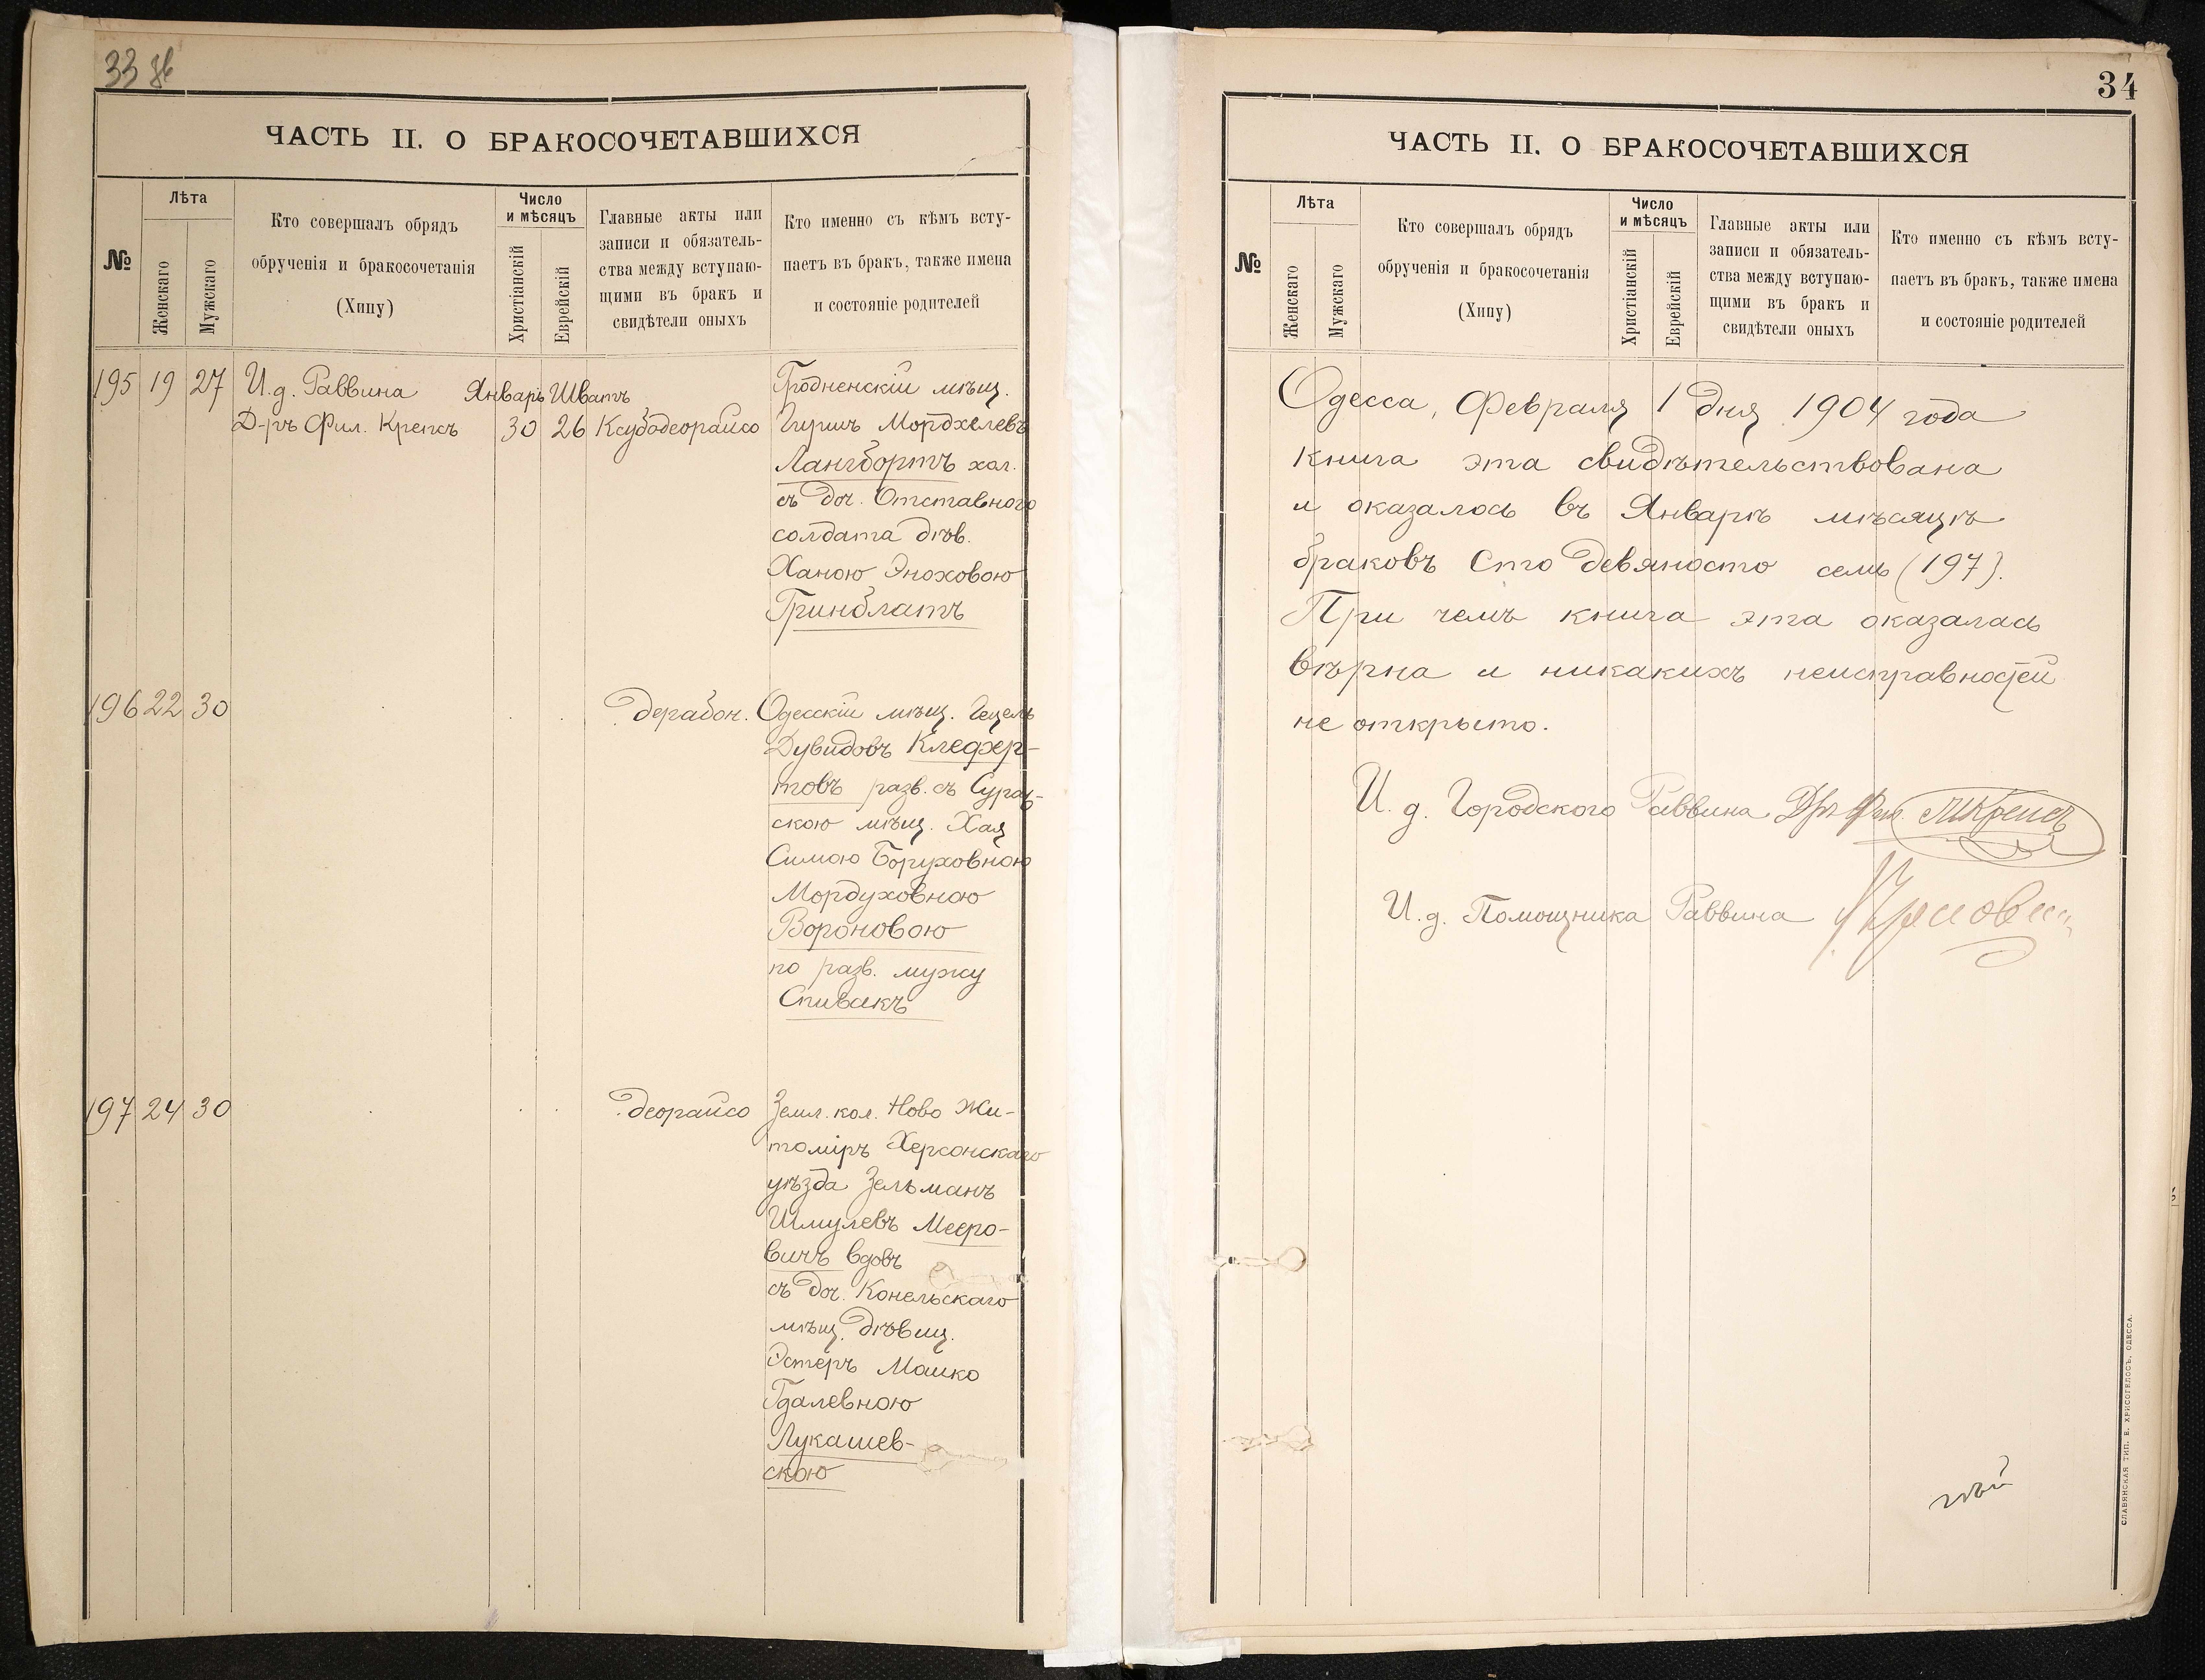 33 об
ЧАСТЬ II. О БРАКОСОЧЕТАВШИХСЯ
№
Лѣта
Женскаго
Мужскаго
Кто совершалъ обрядъ
обрученія и бракосочетанія
(Хипу)
Число
и мѣсяцъ
Христіанскій
Еврейскій
Главные акты или
записи и обязатель-
ства между вступаю-
щими въ бракъ и
свидѣтели оныхъ
Кто именно съ кѣмъ всту-
паетъ въ бракъ, также имена
и состояніе родителей
195 19 27 И. д. Раввина Январь Шватъ Гродненскій мѣщ.
Д-ръ Фил. Крепсъ 30 26 Ксубодеорайсо Гиршъ Мордхелевъ
Лангбортъ хол.
съ доч. Отставного
солдата дѣв.
Ханою Эноховою
Гринблатъ
196 22 30 дерабон. Одесскій мѣщ. Гецель
Дувидовъ Клефер-
товъ разв. съ Сураж-
скою мѣщ. Хая
Симою Боруховною
Мордуховною
Вороновою
по разв. мужу
Спивакъ
197 24 30 деорайсо Земл. кол. Ново Жи-
томіръ Херсонскаго
уѣзда Зельманъ
Шмулевъ Мееро-
вичъ вдовъ
съ доч. Конельскаго
мѣщ. дѣвиц.
Эстеръ Машко
Гдалевною
Лукашев-
скою
34
ЧАСТЬ II. О БРАКОСОЧЕТАВШИХСЯ
№
Лѣта
Женскаго
Мужскаго
Кто совершалъ обрядъ
обрученія и бракосочетанія
(Хипу)
Число
и мѣсяцъ
Христіанскій
Еврейскій
Главные акты или
записи и обязатель-
ства между вступаю-
щими въ бракъ и
свидѣтели оныхъ
Кто именно съ кѣмъ всту-
паетъ въ бракъ, также имена
и состояніе родителей
Одесса, Февраля 1 дня 1904 года
книга эта свидѣтельствована
и оказалось въ Январѣ мѣсяцѣ
браковъ Сто девяносто семь (197).
При чемъ книга эта оказалась
вѣрна и никакихъ неисправностей
не открыто.
И. д. Городского Раввина Д-ръ Фил. Крепсъ
И. д. Помощника Раввина
СЛАВЯНСКАЯ ТИП. Е. ХРИСОГЕЛОСЪ, ОДЕССА.